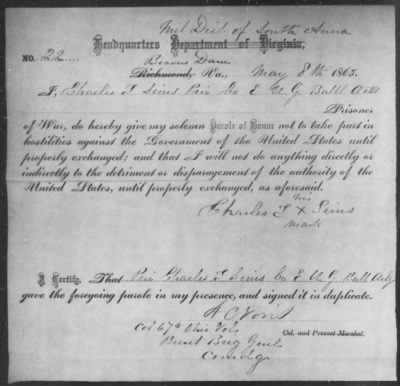 Mil Dist. of South Anna
Headquarters Department of Virginia,
NO. 22
Beaver Dam
Richmond, Va., May 8th 1865.
I, Charles T Sims Priv Co E
Prisoner
of War, do hereby give my solemn Parole of Honor not to take part in
hostilities against the Government of the United States until
properly exchanged; and that I will not do anything directly or
indirectly to the detriment or disparagement of the authority of the
United States, until properly exchanged, as aforesaid.
his
Charles T x Sims
mark
I Certify, That Priv Charles T Sims Co E
gave the foregoing parole in my presence, and signed it in duplicate.
A C Voris
Col 67th Ohio Vols
Col. and Provost-Marshal.
Brevet Brig Genl
Comdg